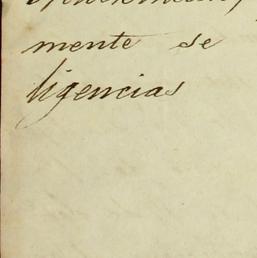 mente se
ligencias